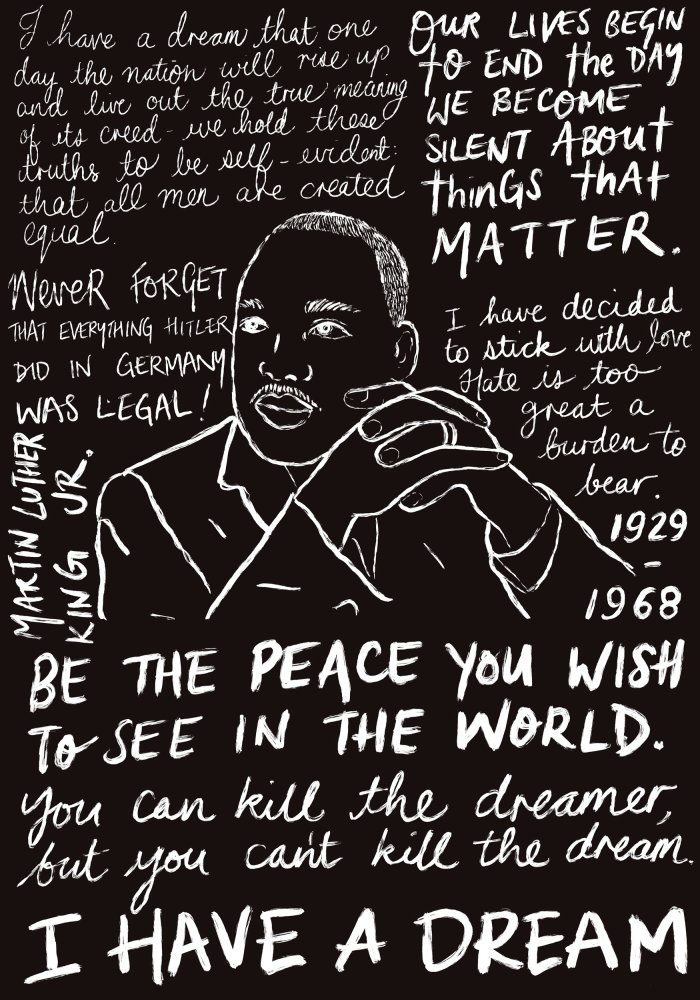 I have a dream that one
day the nation will rise up
and live out the true meaning
of its creed - we hold these
truths to be self - evident:
that all men are created
equal.
OUR LIVES BEGIN
TO END the DAY
WE BECOME
SILENT ABOUT
thinGS thAt
MATTER.
NeveR FORGET
THAT EVERYTHING HITLER
DID IN GERMANY
WAS LEGAL!
I have decided
to stick with love
Hate is too
great a
burden to
bear.
MARTIN LUTHER
KING JR.
1929
-
1968
BE THE PEACE YOU WISH
TO SEE IN THE WORLD.
You can kill the dreamer,
but you can't kill the dream.
I HAVE A DREAM